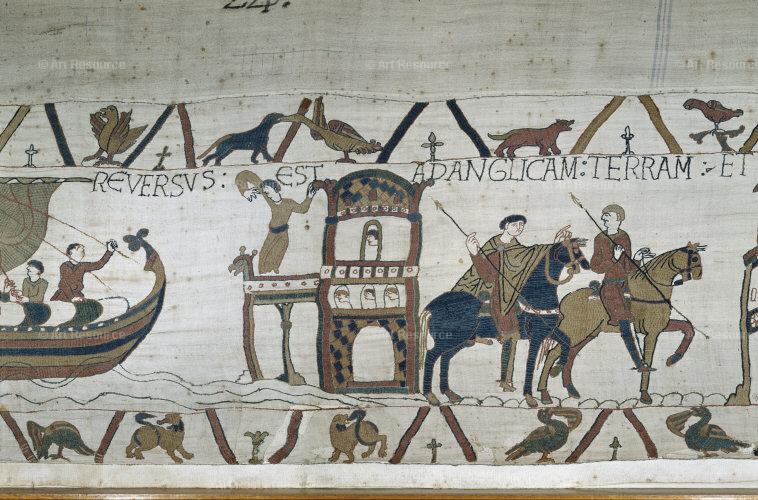 24.
© Art Resource
© Art Resource
© Art Resource
REVERSUS : EST AD ANGLICAM : TERRAM : ET
© Art Resource
© Art Resource
© Art Resource